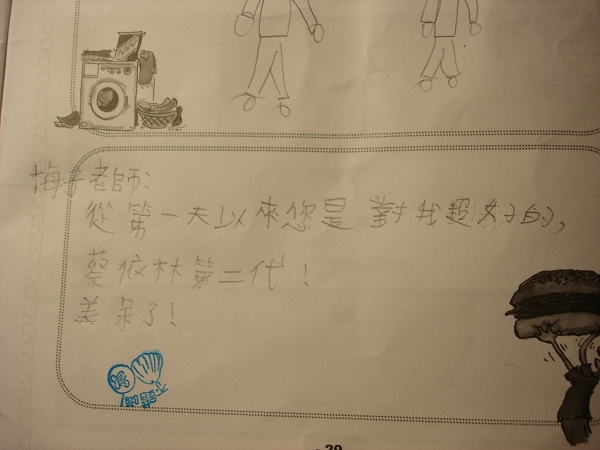 梅子老師:
從第一天以來您是對我超好的,
蔡依林第二代!
美呆了!
不錯喲!
- 20